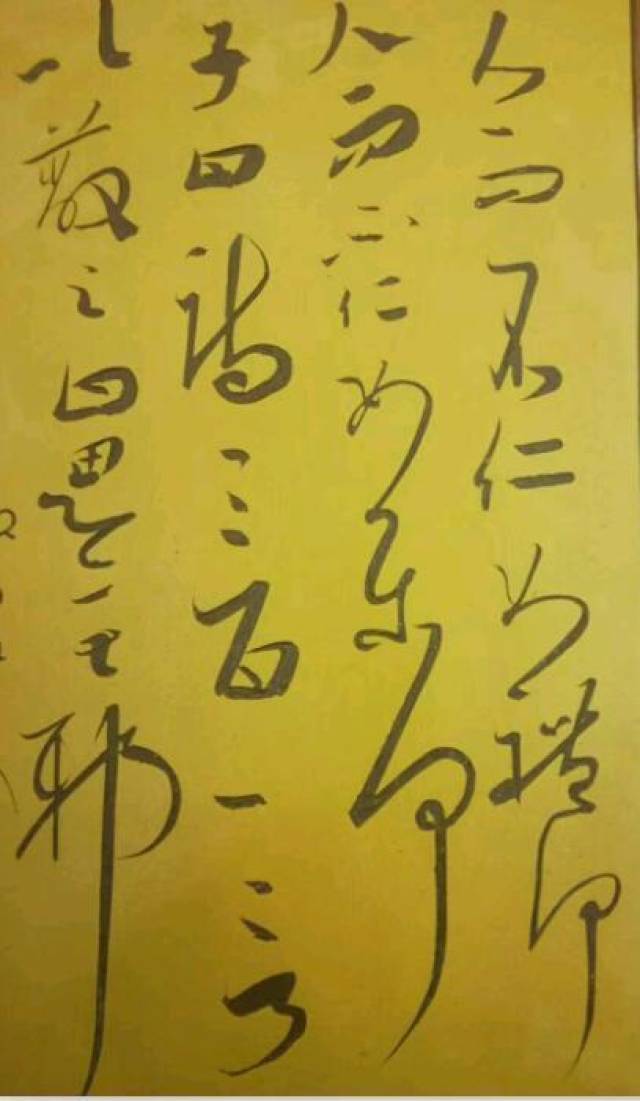 人而不仁如禮何
人而不仁如樂何
子曰詩三百一言
以蔽之曰思無邪